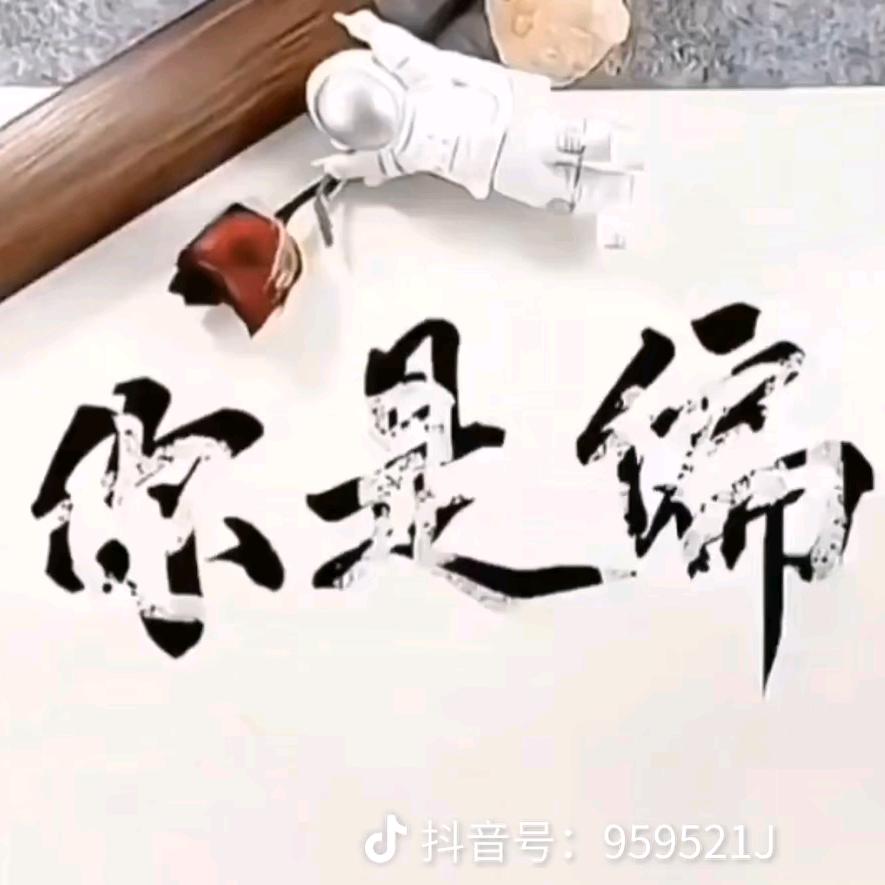 你是偏
抖音号：959521J